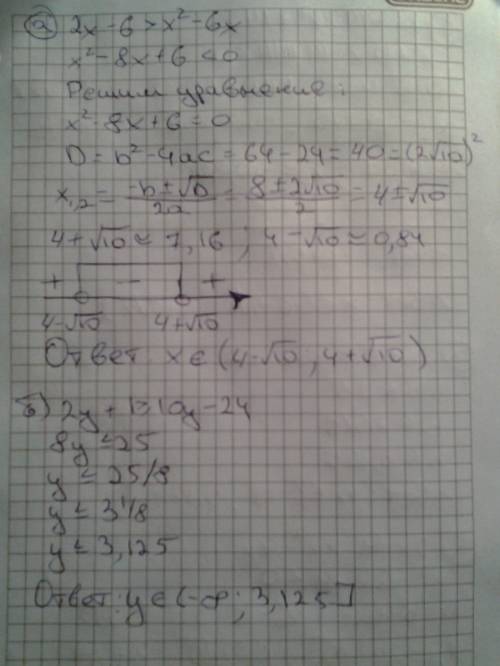 а) 2x - 6 > x² - 6x
x² - 8x + 6 < 0
Решим уравнение:
x² - 8x + 6 = 0
D = b² - 4ac = 64 - 24 = 40 = (2√10)²
x₁,₂ = (-b ± √D)/2a = (8 ± 2√10)/2 = 4 ± √10
4 + √10 ≈ 7,16 ; 4 - √10 ≈ 0,84
+ - +
4-√10 4+√10
Ответ x ∈ (4-√10 ; 4+√10)
б) 2y + 1 ≥ 10y - 24
8y ≤ 25
y ≤ 25/8
y ≤ 3 1/8
y ≤ 3,125
Ответ: y ∈ (-∞; 3,125]